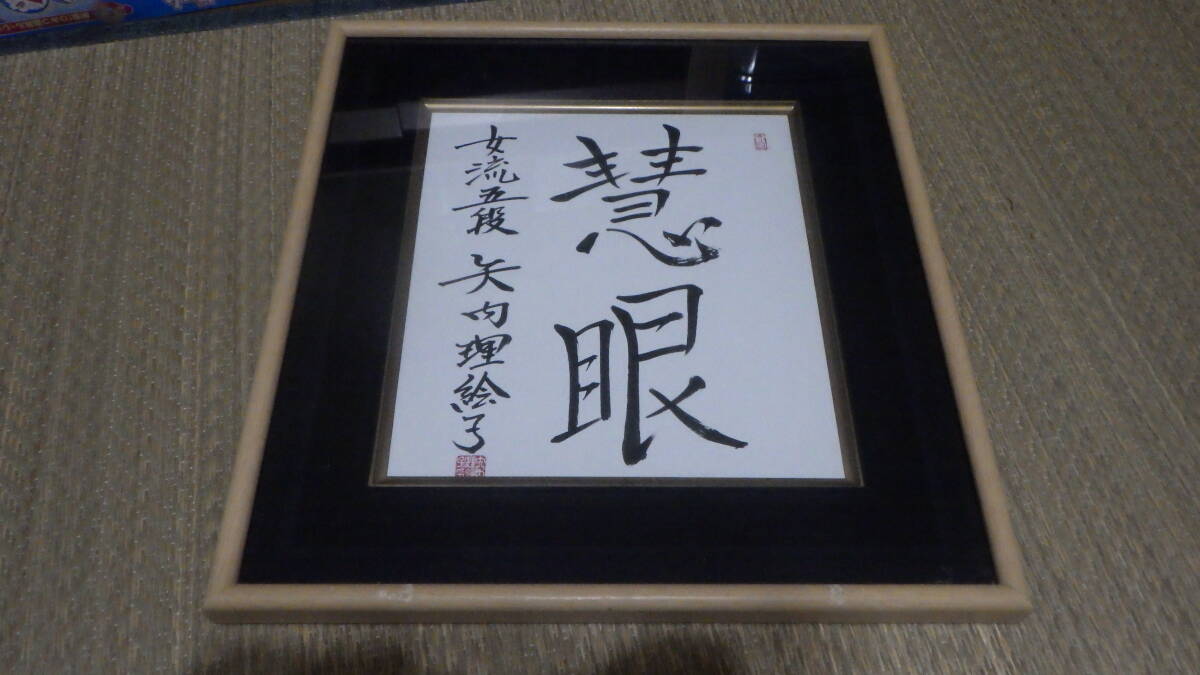 慧眼
女流五段 矢内理絵子